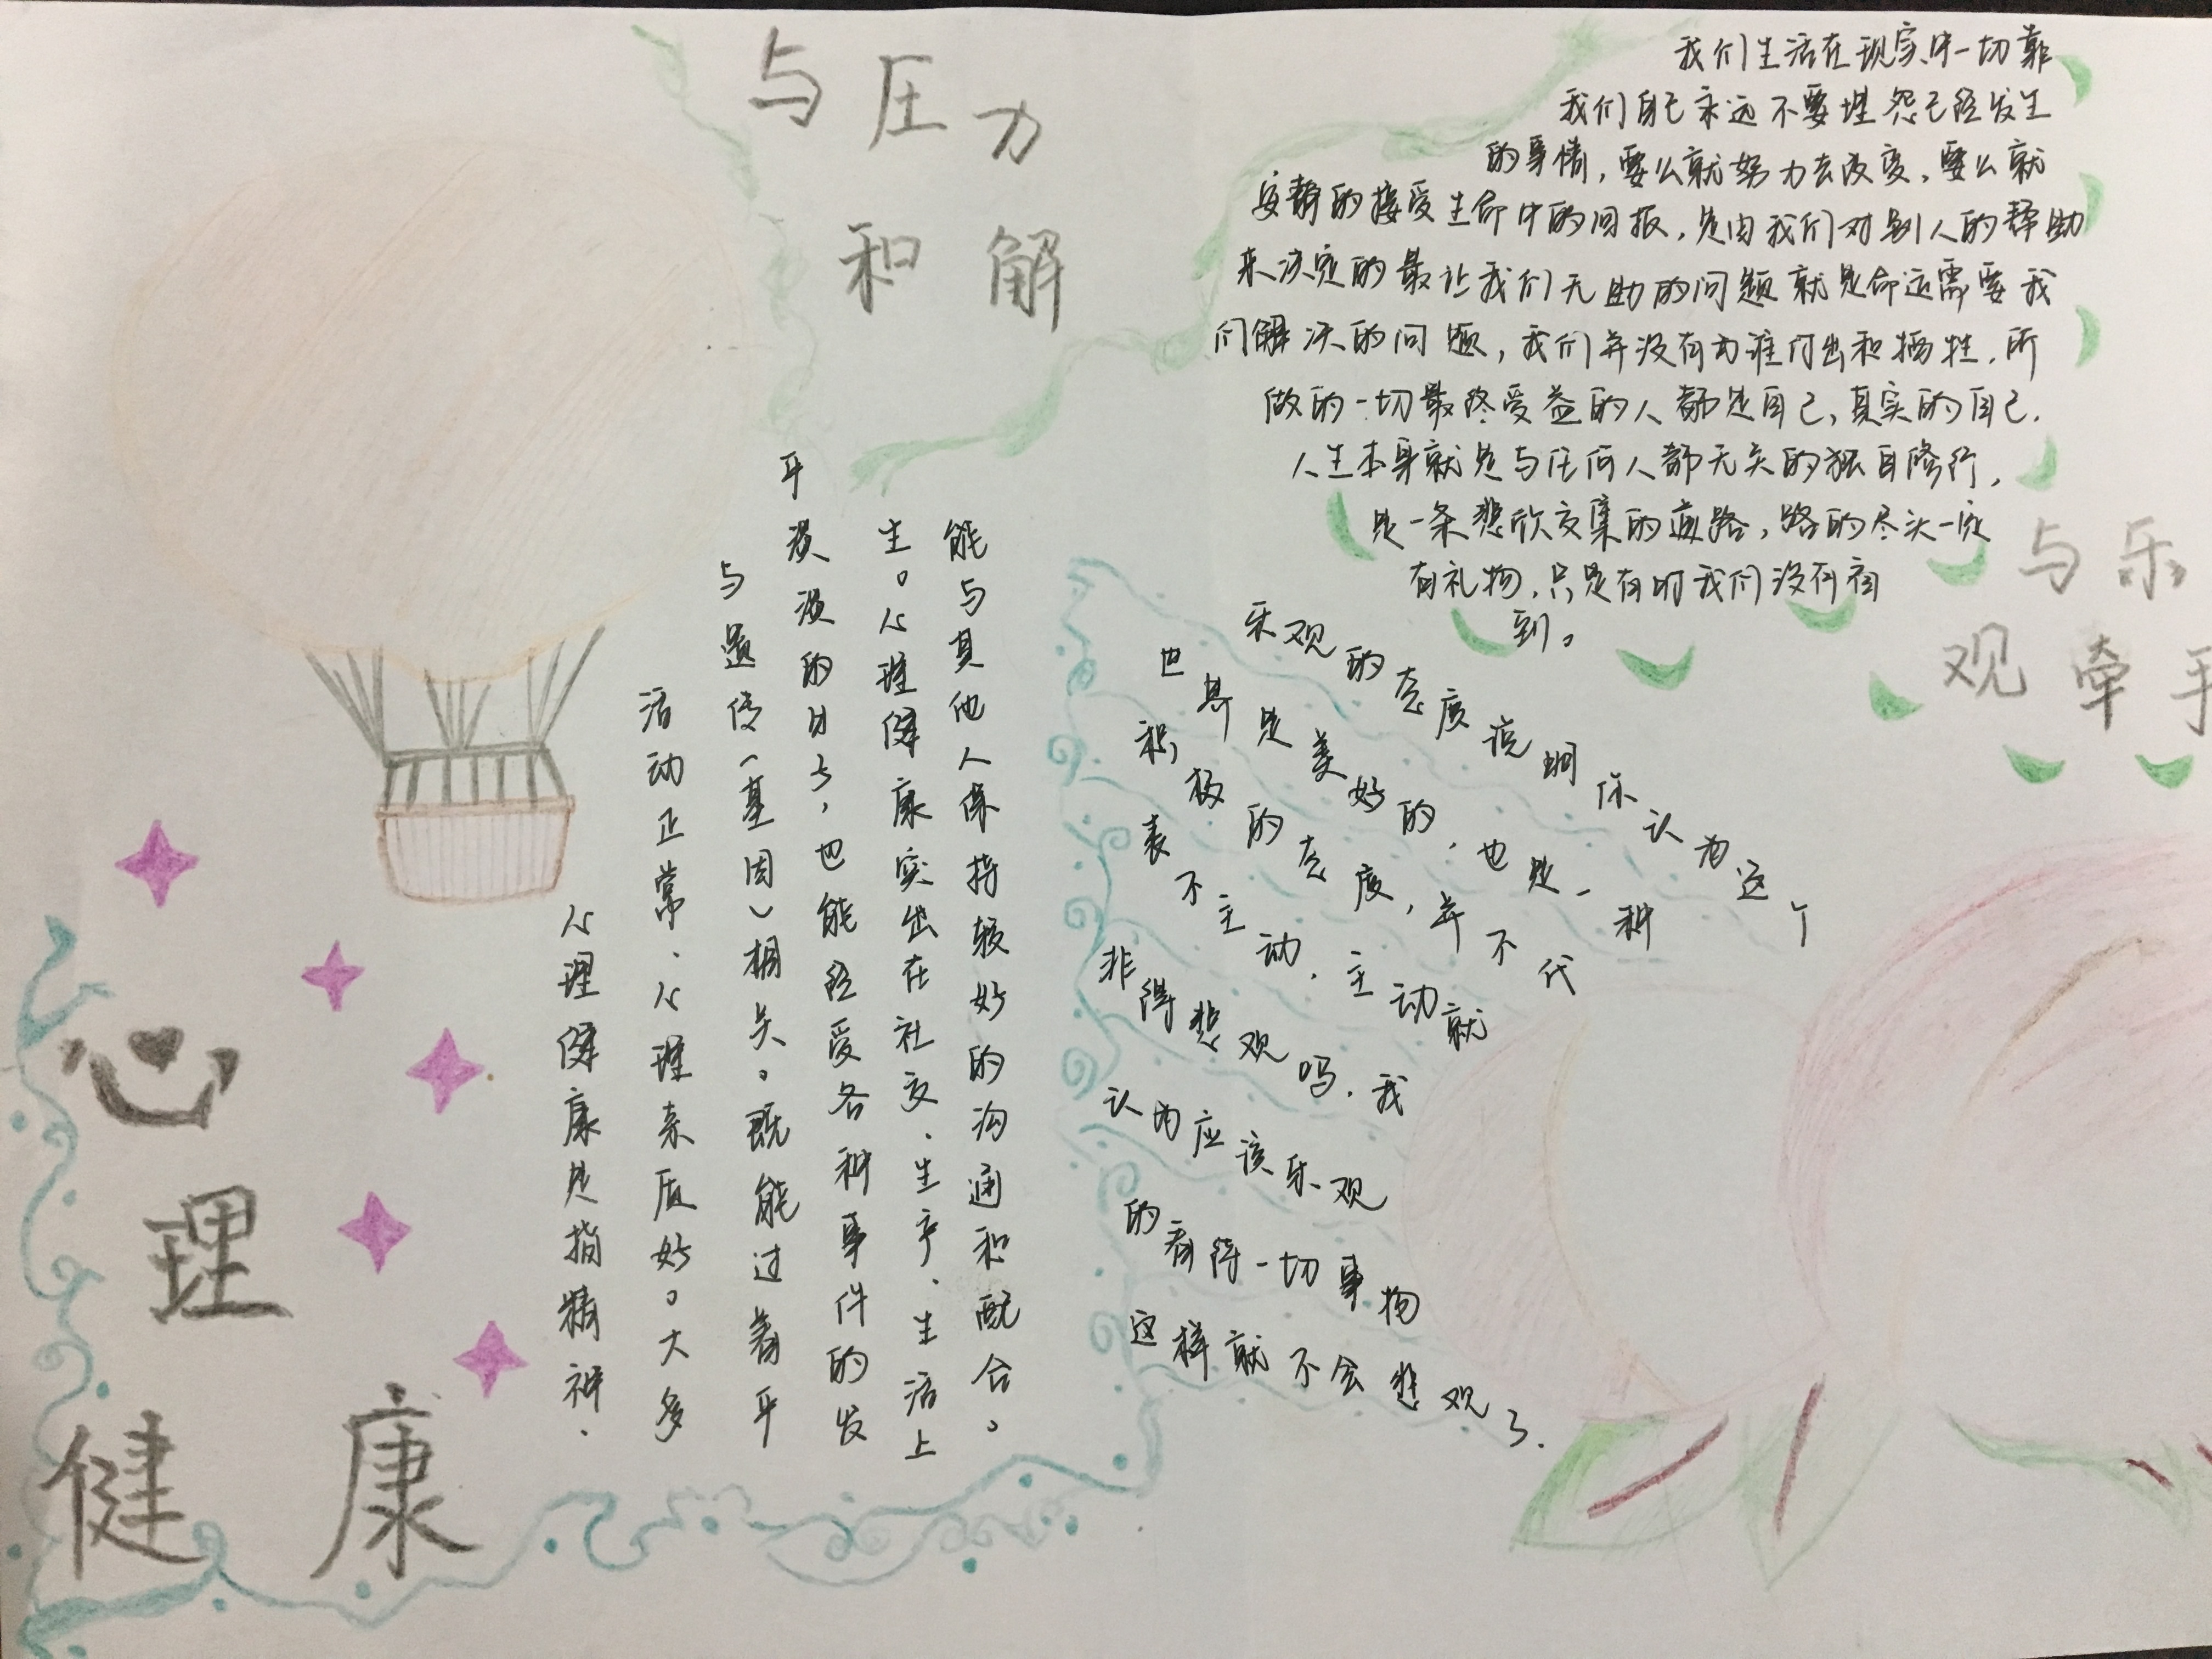 与压力
和解
我们生活在现实中一切靠
我们自己永远不要埋怨已经发生
的事情，要么就努力去改变，要么就
安静的接受生命中的回报，是由我们对别人的帮助
来决定的最让我们无助的问题就是命运需要我
们解决的问题，我们并没有为谁付出和牺牲，所
做的一切最终受益的人都是自己，真实的自己.
人生本身就是与任何人都无关的独自修行，
是一条悲欣交集的道路，路的尽头一定
有礼物，只是有时我们没有看
到。
与乐
观牵手
心理
健康
心理健康是指精神、
活动正常、心理素质好。大多
与遗传（基因）相关。既能过着平
平淡淡的日子，也能经受各种事件的发
生。心理健康突出在社交、生产、生活上
能与其他人保持较好的沟通和配合。
乐观的态度说明你认为这个
世界是美好的，也是一种
积极的态度，并不代
表不主动，主动就
非得悲观吗，我
认为应该乐观
的看待一切事物
这样就不会悲观了.